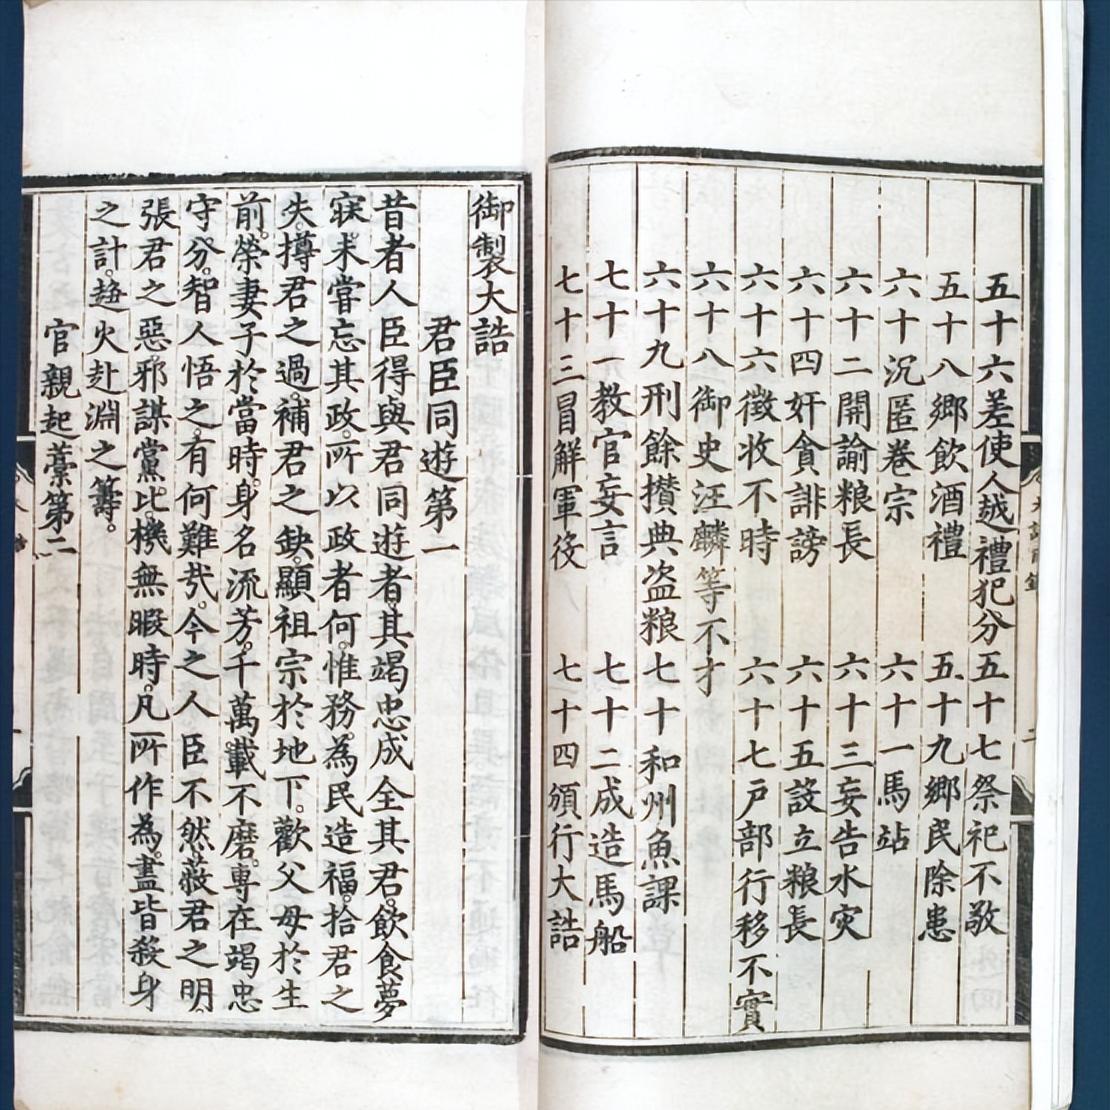 五十六差使人越禮犯分 五十七祭祀不敬
五十八鄉飲酒禮 五十九鄉民除患
六十沉匿卷宗 六十一馬站
六十二開諭粮長 六十三妄告水灾
六十四奸貪誹謗 六十五設立粮長
六十六徵收不時 六十七戶部行移不實
六十八御史汪麟等不才
六十九刑餘攅典盗粮 七十和州魚課
七十一教官妄言 七十二成造馬船
七十三冒解軍役 七十四頒行大誥
御製大誥
君臣同遊第一
昔者人臣得與君同遊者。其竭忠成全其君。飲食夢
寐。未嘗忘其政。所以政者何。惟務。為民造福。拾君之
失。撙君之過。補君之缺。顯祖宗於地下。歡父母於生
前。榮妻子於當時。身名流芳。千萬載不磨。專在竭忠
守分。智人悟之。有何難㢤。今之人臣不然。蔽君之明。
張君之惡。邪謀黨比。機無暇時。凡所作為。盡皆殺身
之計。趍火赴淵之籌。
官親起藁第二